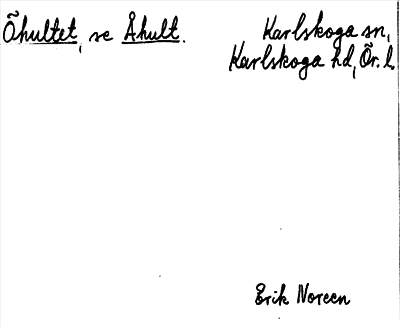 Õhultet, se Åhult.
Karlskoga sn,
Karlskoga hd, Õr. l.
Erik Noreen